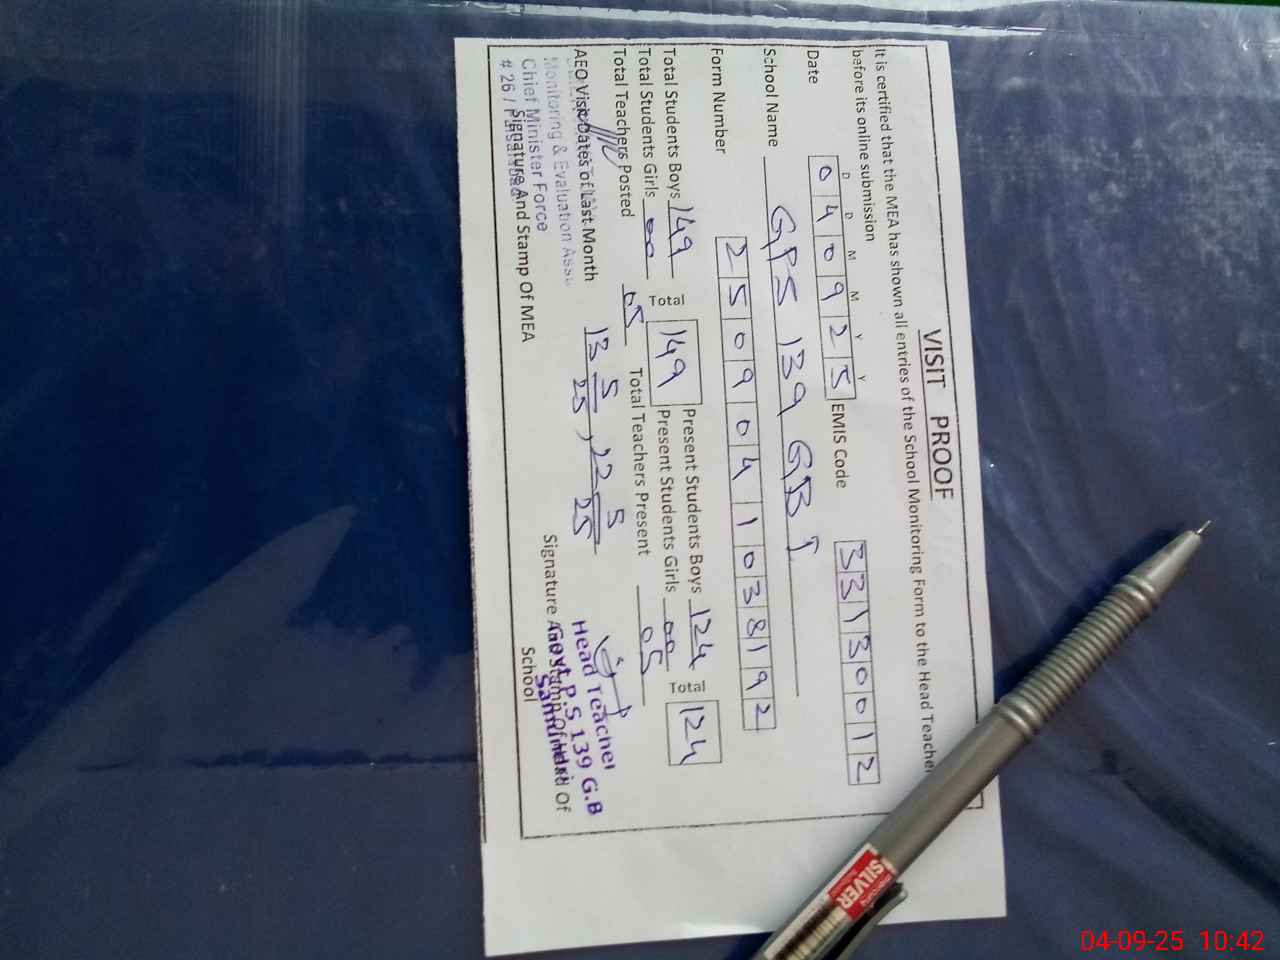 VISIT PROOF
It is certified that the MEA has shown all entries of the School Monitoring Form to the Head Teacher
before its online submission
D D M M Y Y
Date 0 4 0 9 2 5 EMIS Code 3 3 1 3 0 0 1 2
School Name GPS 139 GB I
Form Number 2 5 0 9 0 4 1 0 3 8 1 9 2
Total Students Boys 149 Total 149 Present Students Boys 124 Total 124
Total Students Girls 00 Present Students Girls 00
Total Teachers Posted 05 Total Teachers Present 05
AEO Visit Dates of Last Month 13 5/25, 22 5/25
Monitoring & Evaluation Assi
Chief Minister Force
# 26 / Faisalabad
Signature And Stamp Of MEA
Head Teacher
Govt. P.S 139 G.B
Signature And Stamp Of Head Of
School
SILVER
04-09-25 10:42